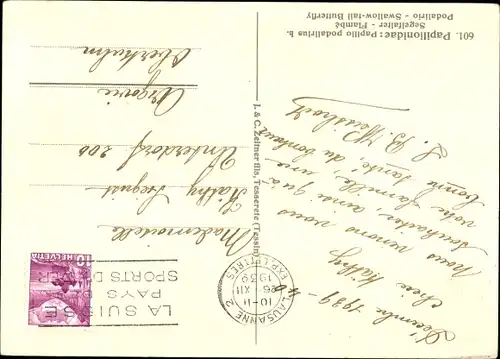 601. Papilionidae: Papilio podalirius h.
Segelfalter - Flambé
Podalirio - Swallow-tail Butterfly
Décembre 1939
Chère Käthy
nous venons vous
souhaiter ainsi qu'à
votre famille, une
bonne santé, du bonheur
J. & C. Zeltner fils, Tesserete (Tessin)
LAUSANNE 2
10-11
26 XII
1939
EXP. LETTRES
LA SUISSE
PAYS
SPORTS D
HELVETIA
10
Mademoiselle
Käthy
Unterdorf 200
Oberkulm
Argovie